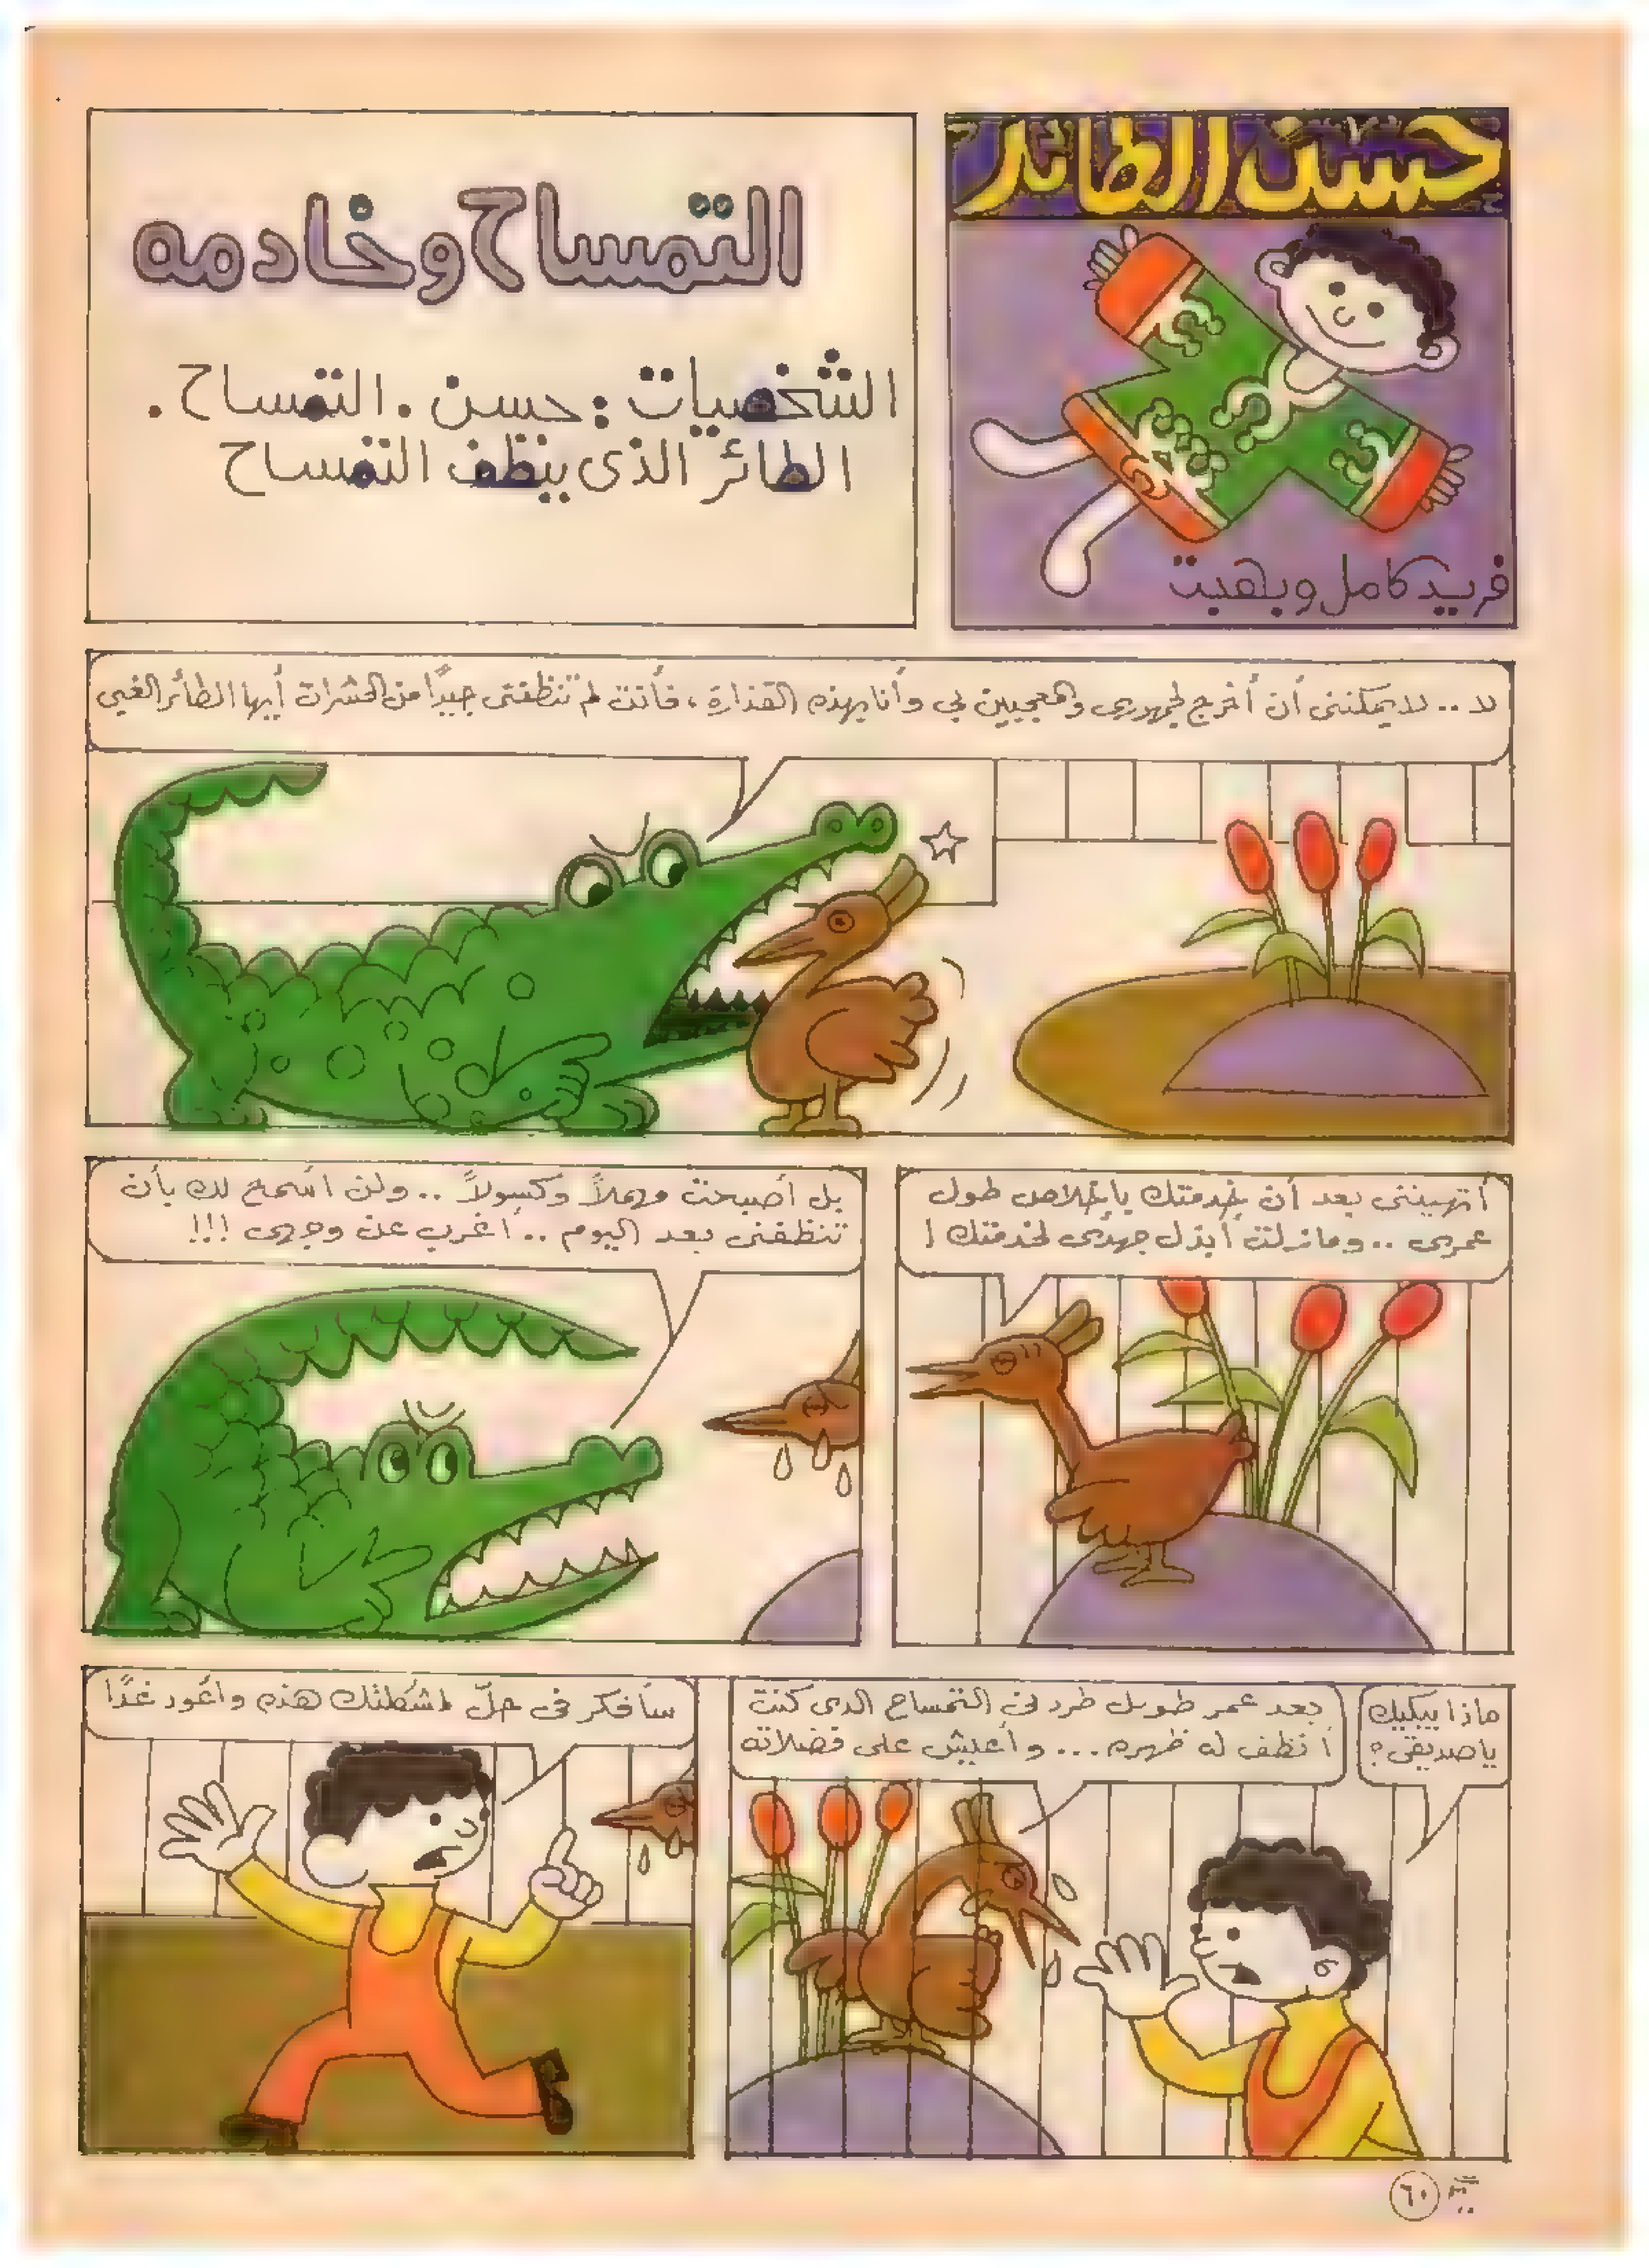 حسن الطائر
فريد كامل وبهبت
التمساح وخادمه
الشخصيات : حسن . التمساح .
الطائر الذى ينظف التمساح
لا .. لا يمكننى أن أخرج لجمهورى والمعجبين بي وأنا بهذه القذارة ، فأنت لم تنظفنى جيدًا من الحشرات أيها الطائر الغبى
أتهيننى بعد أن خدمتك بإخلاص طول
عمرى .. ومازلت أبذل جهدى لخدمتك !
بل أصبحت مهملاً وكسولاً .. ولن أسمح لك بأن
تنظفنى بعد اليوم .. أغرب عن وجهى !!!
ماذا يبكيك
يا صديقى ؟
بعد عمر طويل طردنى التمساح الذى كنت
أنظف له ظهره ... وأعيش على فضلاته
سأفكر فى حلّ لمشكلتك هذه وأعود غدًا
٦٠